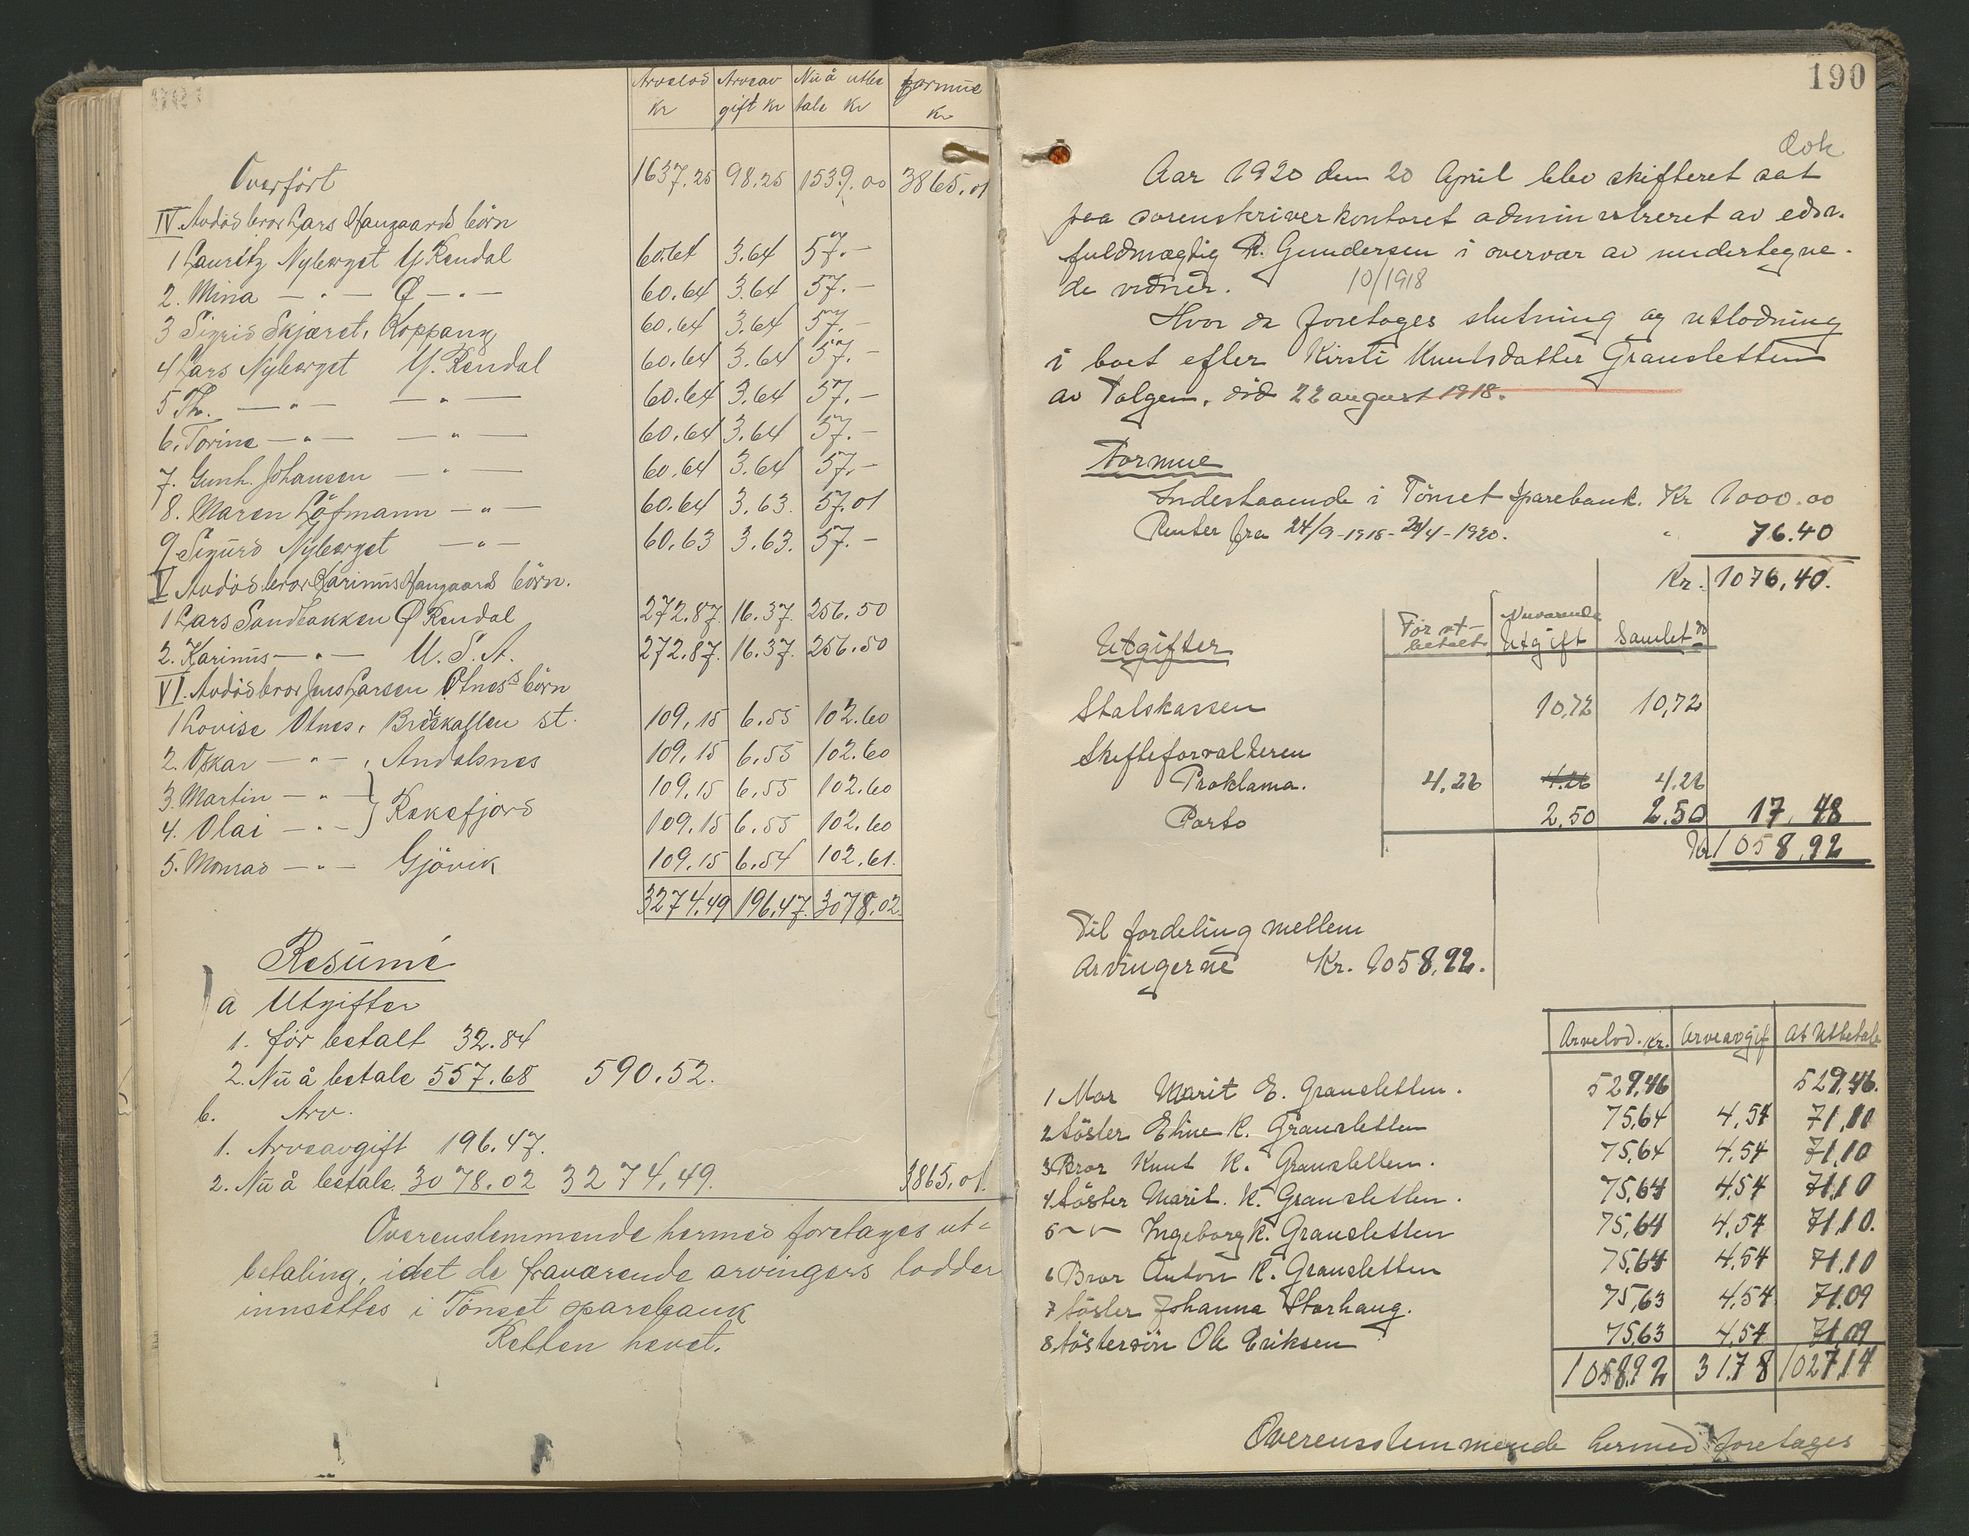 Arvelod Arveav Nu å utbe formue
kr gift kr tale kr kr
Overført 1637.25 98.25 1539.00 3865.01
IV Avdødes bror Lars Haugaards börn
1 Lauritz Nyberget Y. Rendal 60.64 3.64 57.-
2. Mina — " — Ø — " — 60.64 3.64 57.-
3 Sigrid Skjæret, Koppang 60.64 3.64 57.-
4 Lars Nyberget Y. Rendal 60.64 3.64 57.-
5 Th. — " — — " — 60.64 3.64 57.-
6. Torine — " — — " — 60.64 3.64 57.-
7. Gunh. Johansen — " — 60.64 3.64 57.-
8. Maren Löfmann — " — 60.64 3.63. 57.01
9 Sigurd Nyberget — " — 60.63 3.63. 57.-
V Avdødes bror Karinus Haugaards börn.
1 Lars Sandbakken Ø Rendal 272.87. 16.37. 256.50
2. Karinus — " — U. S. A. 272.87. 16.37. 256.50
VI. Avdødes bror Jens Larsen Otnes's börn
1 Lovise Otnes, st. 109.15 6.55 102.60
2. Oskar — " — , Åndalsnes 109.15 6.55 102.60
3. Martin — " — 109.15 6.55 102.60
} Reksfjord
4. Olai — " — 109.15 6.55 102.60
5. Monrad — " — Gjövik 109.15 6.54 102.61.
3274.49 196.47. 3078.02.
Resumé
a Utgifter
1. før betalt 32.84
2. Nu å betale 557.68 590.52.
b. Arv.
1. Arveavgift 196.47.
2. Nu å betale 3078.02 3274.49. 3865.01.
Overenstemmende hermed foretages ut-
betaling, idet de fraværende arvingers lodder
innsettes i Tönset sparebank
Retten hevet.
190
Dok
Aar 1920 den 20 April blev skifteret sat
paa sorenskriverkontoret administreret av edsv.
fuldmægtig R. Gundersen i overvær av undertegne-
de vidner. 10/1918
Hvor da foretages slutning og utlodning
i boet efter Kirsti Knutsdatter Gransletten
av Tolgen, död 22 august 1918.
Formue
Indestaaende i Tönset sparebank. Kr 1000.00
Renter fra 24/9-1918-24/4-1920. " 76.40
Kr. 1076,40.
Utgifter Før ut- Nuværende
betalt Utgift Samlet
Statskassen 10,72 10,72
Skifteforvalteren
Proklama. 4,26 4.26 4.26
Porto 2,50 2.50 17,48
Kr 1058,92
Til fordeling mellem
arvingerne Kr. 1058,92.
Arvelod. kr. Arveavgif At Utbetale
1 Mor Marit E. Gransletten. 529,46 529,46.
2 Söster Eline K. Gransletten 75,64 4,54 71,10
3 Bror Knut K. Gransletten. 75,64 4,54 71,10
4 Söster Marit. K. Gransletten. 75,64 4,54 71,10
5 — " — Ingeborg K. Gransletten 75,64 4,54 71,10.
6 Bror Anton K. Gransletten 75,64 4,54 71,10
7 Söster Johanna Storhaug. 75,63 4,54 71,09
8 Söstersön Ole Eriksen 75,63 4,54 71,09
1058,92 31,78 1027,14
Overensstemmende hermed foretages